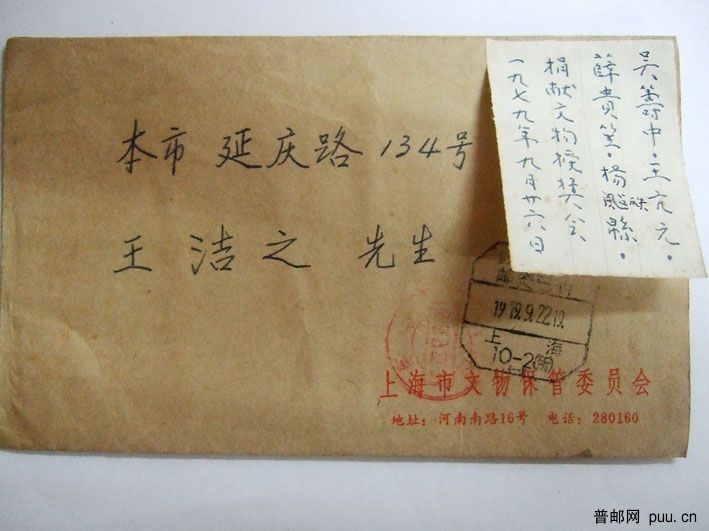 本市 延庆路 134号
王洁之 先生
吴筹中·王亢元·
薛贵笙·杨
捐献文物授奖大会
一九七九年九月廿六日
1979.9.22.19
上海
10-2(所)
上海市文物保管委员会
地址：河南南路16号 电话：280160
普邮网 puu.cn